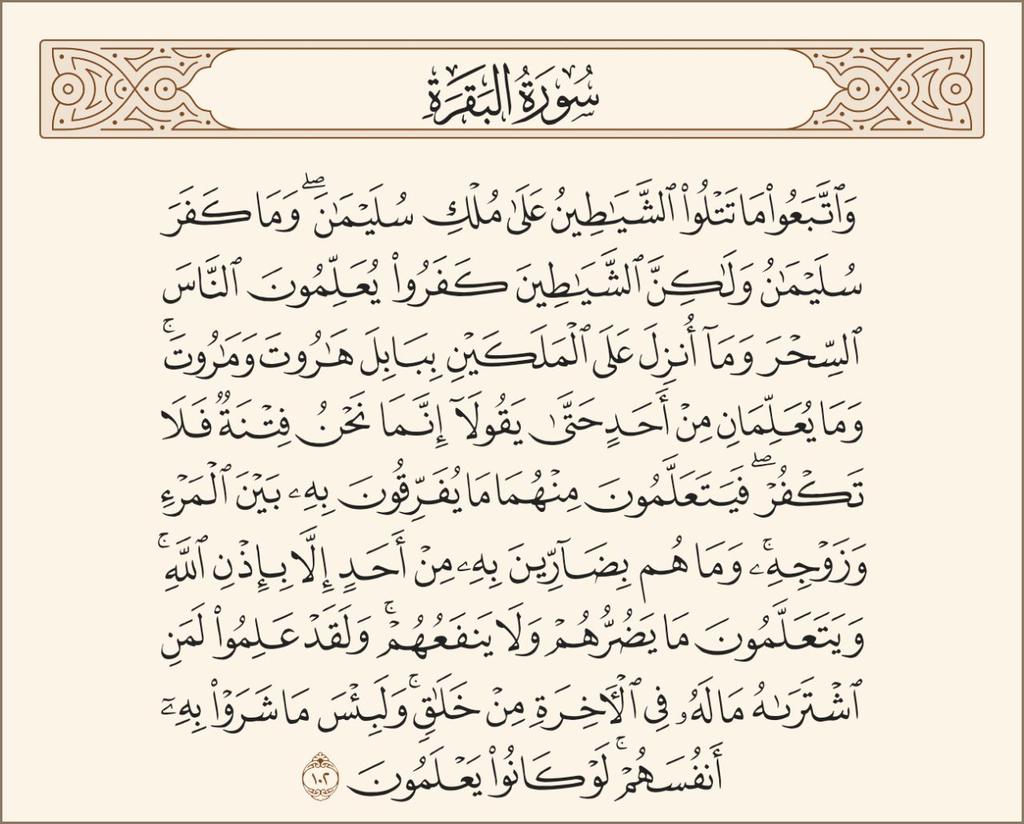 سُورَةُ البَقَرَةِ
وَٱتَّبَعُواْ مَا تَتْلُواْ ٱلشَّيَٰطِينُ عَلَىٰ مُلْكِ سُلَيْمَٰنَۖ وَمَا كَفَرَ
سُلَيْمَٰنُ وَلَٰكِنَّ ٱلشَّيَٰطِينَ كَفَرُواْ يُعَلِّمُونَ ٱلنَّاسَ
ٱلسِّحْرَ وَمَآ أُنزِلَ عَلَى ٱلْمَلَكَيْنِ بِبَابِلَ هَٰرُوتَ وَمَٰرُوتَۚ
وَمَا يُعَلِّمَانِ مِنْ أَحَدٍ حَتَّىٰ يَقُولَآ إِنَّمَا نَحْنُ فِتْنَةٌ فَلَا
تَكْفُرْۖ فَيَتَعَلَّمُونَ مِنْهُمَا مَا يُفَرِّقُونَ بِهِۦ بَيْنَ ٱلْمَرْءِ
وَزَوْجِهِۦۚ وَمَا هُم بِضَآرِّينَ بِهِۦ مِنْ أَحَدٍ إِلَّا بِإِذْنِ ٱللَّهِۚ
وَيَتَعَلَّمُونَ مَا يَضُرُّهُمْ وَلَا يَنفَعُهُمْۚ وَلَقَدْ عَلِمُواْ لَمَنِ
ٱشْتَرَىٰهُ مَا لَهُۥ فِي ٱلْأٓخِرَةِ مِنْ خَلَٰقٍۚ وَلَبِئْسَ مَا شَرَوْاْ بِهِۦٓ
أَنفُسَهُمْۚ لَوْ كَانُواْ يَعْلَمُونَ ١٠٢